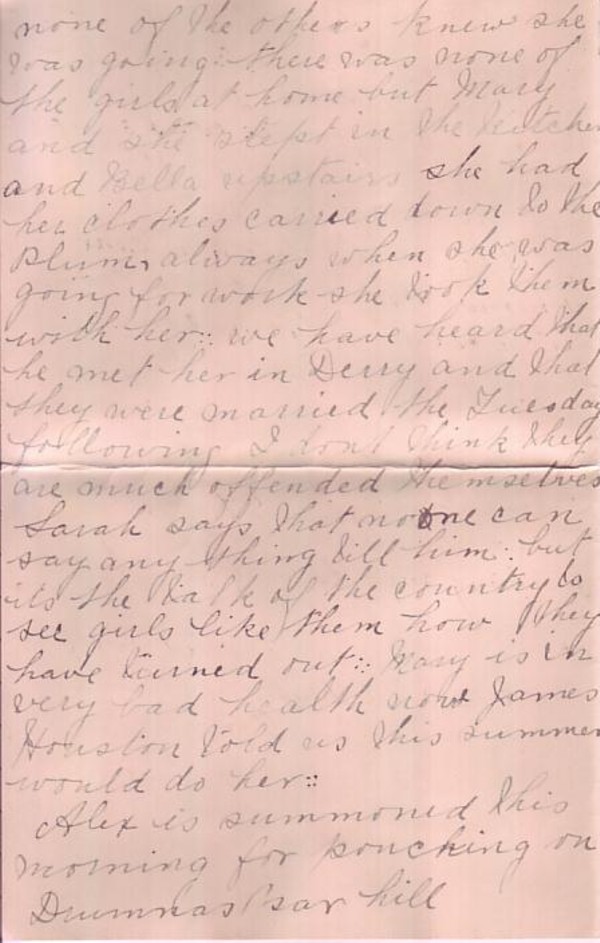 none of the others knew she
was going: there was none of
the girls at home but Mary
and she slept in the Kitchen
and Bella upstairs she had
her clothes carried down to the
always when she was
going for work she took them
with her:: we have heard that
he met her in Derry and that
they were married the Tuesday
following I dont think they
are much offended themselves
Sarah says that no one can
say any thing till him: but
its the talk of the country to
see girls like them how they
have turned out:: Mary is in
very bad health now James
Houston told us this summer
would do her::
Alex is summoned this
morning for pouching on
hill